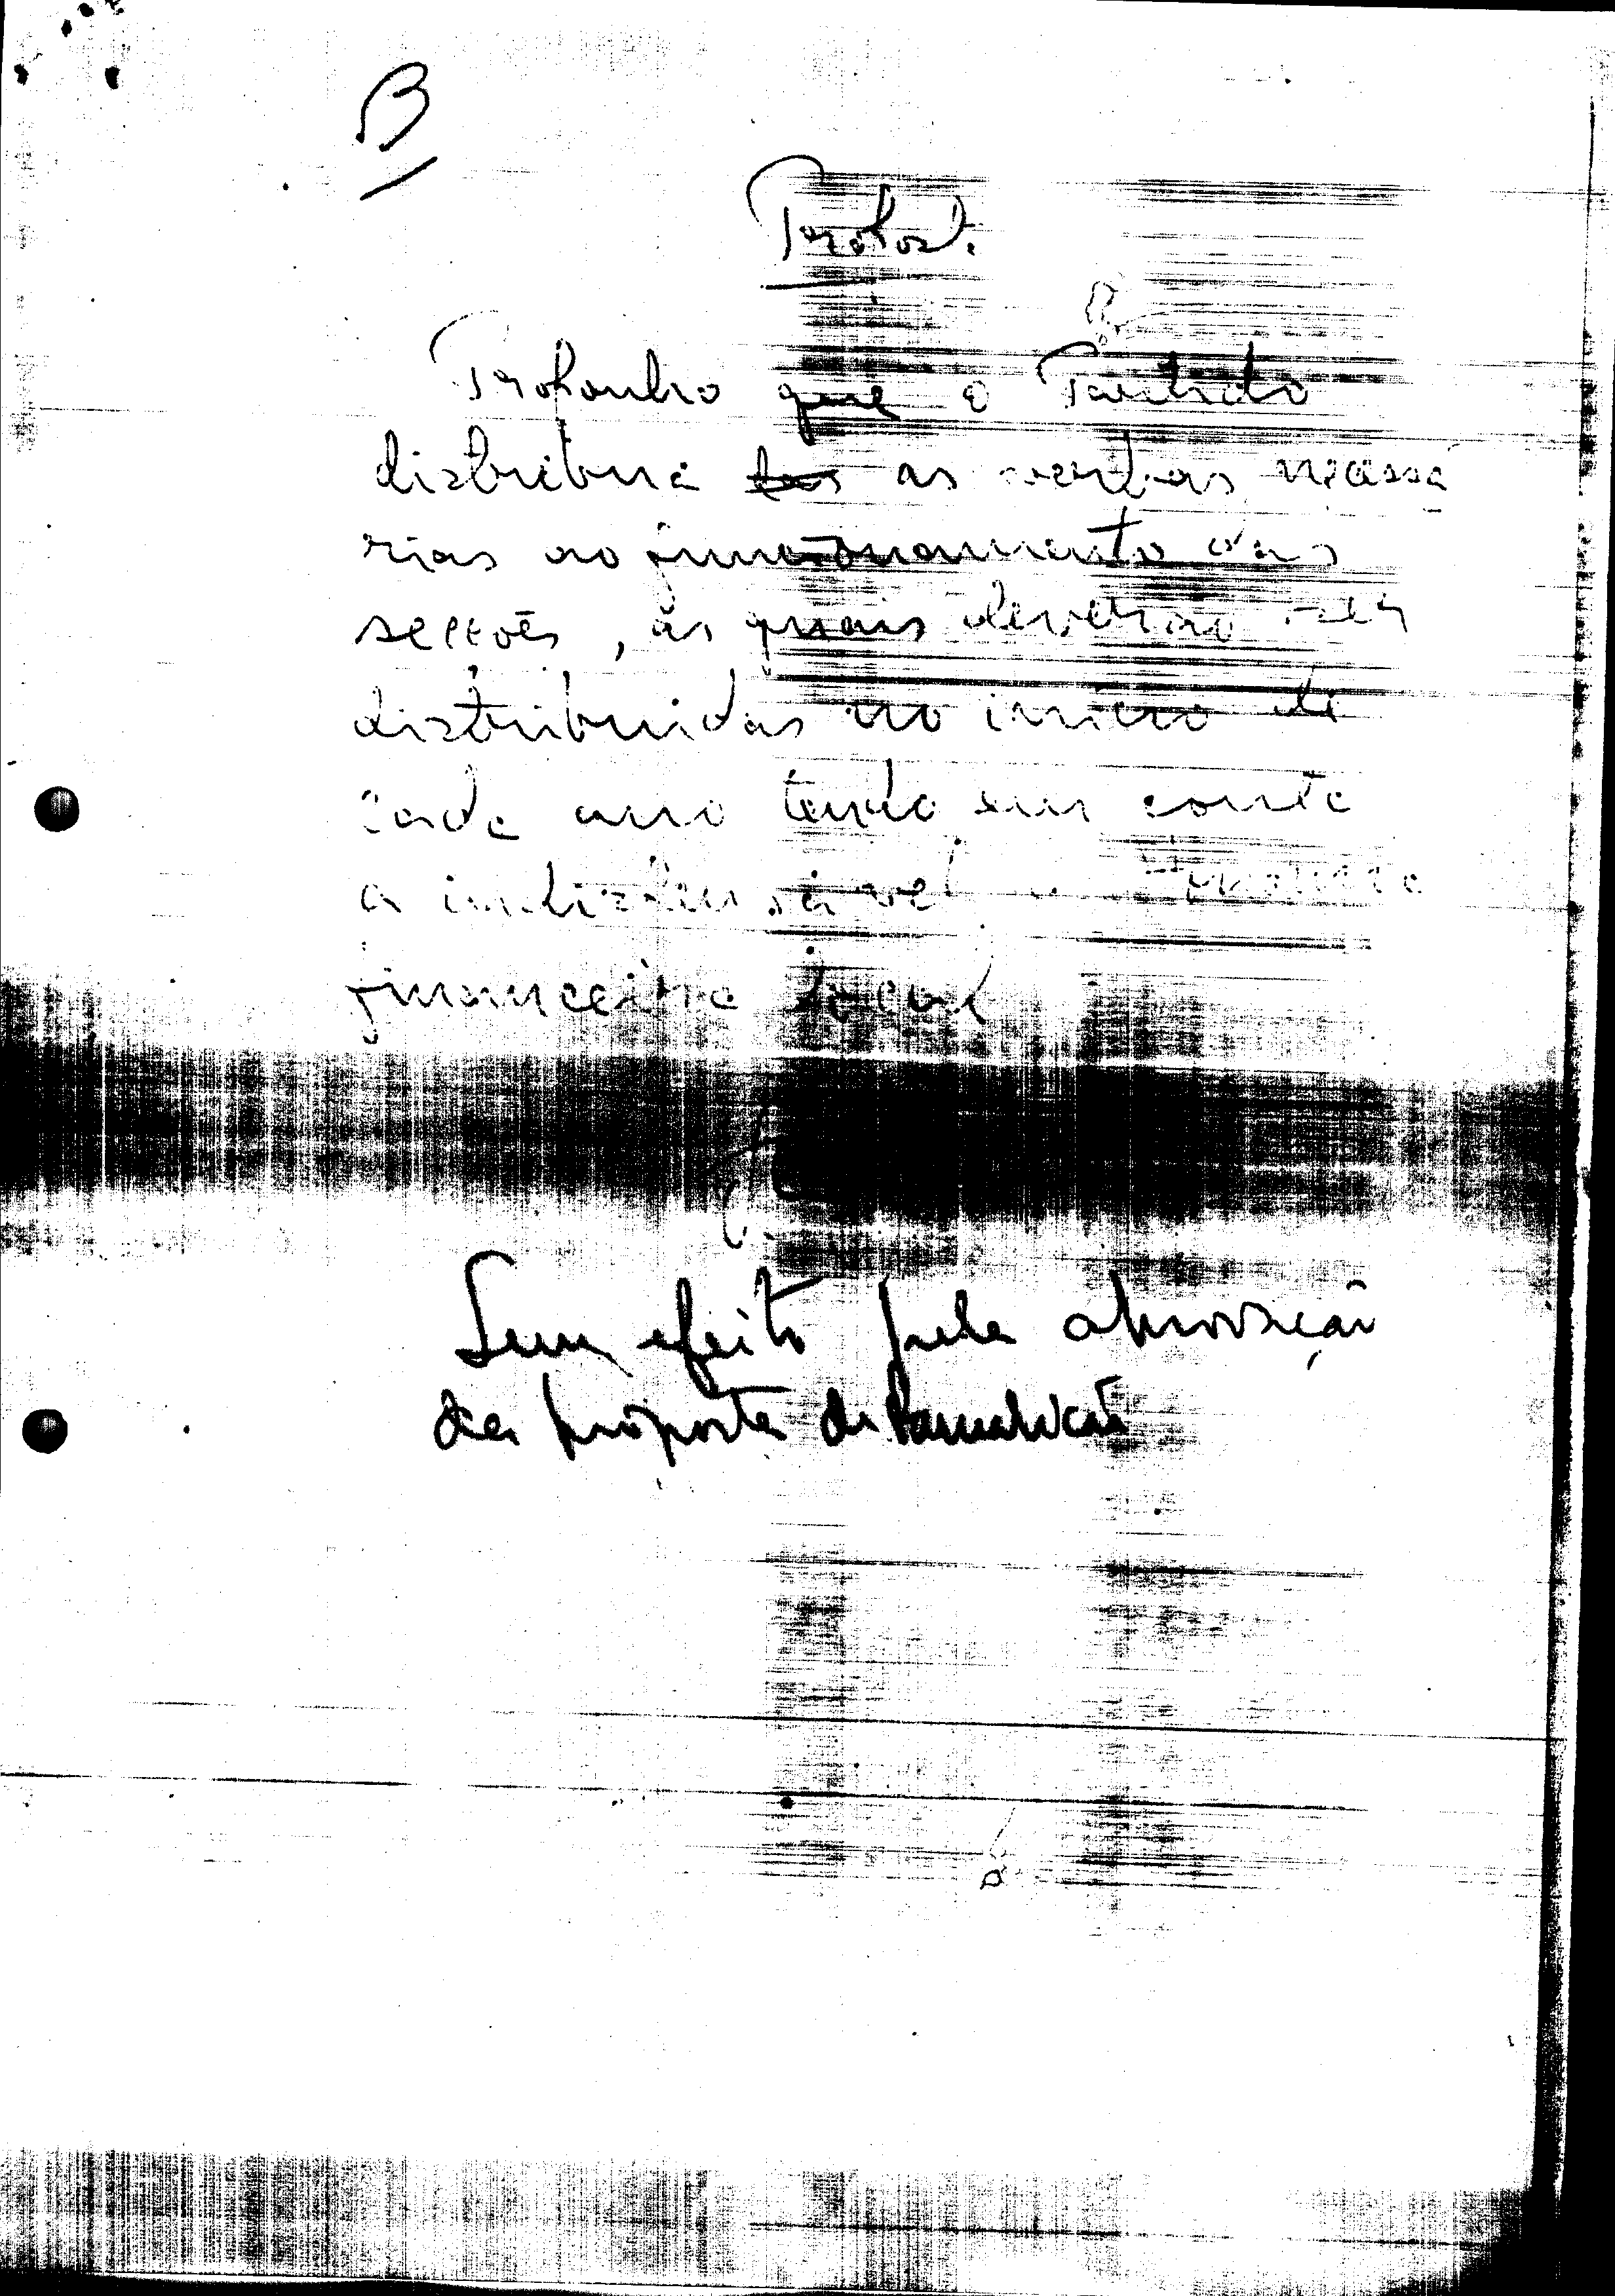 B
Propost.
Proponho que o Partido
distribua as verbas necessá
rias ao funcionamento das
secções, as quais deverão ser
distribuidas no inicio de
cada ano tendo em conta
a indispensável
financeira local
Sem efeito pela aprovação
da proposta de